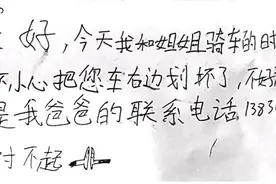 好,今天我和姐姐骑车的时
小心把您车右边划坏了,不好
是我爸爸的联系电话1383
对不起